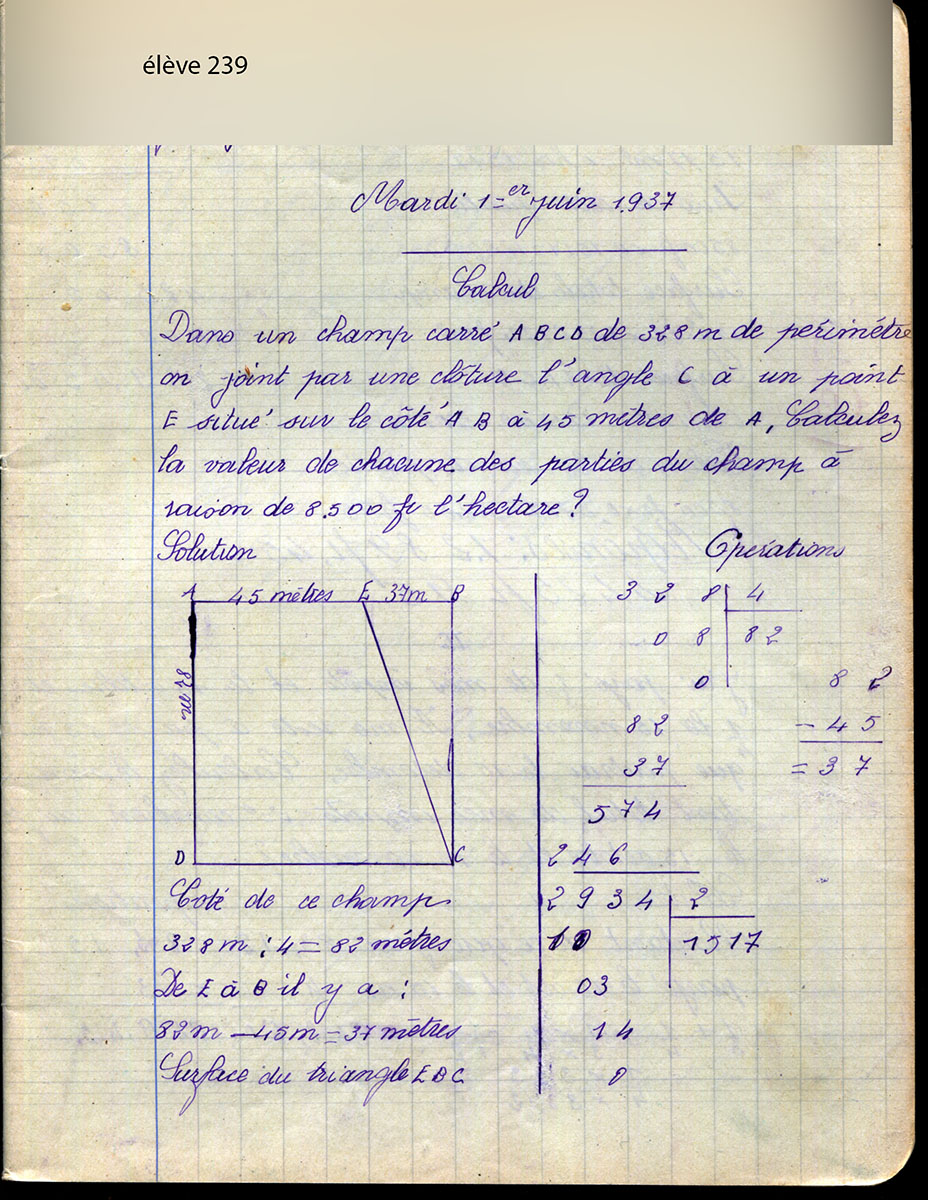 élève 239
Mardi 1er juin 1937
Calcul
Dans un champ carré A B C D de 328 m de périmètre
on joint par une clôture l'angle C à un point
E situé sur le côté A B à 45 mètres de A, Calculez
la valeur de chacune des parties du champ à
raison de 8.500 fr l'hectare ?
Solution
A 45 mètres E 37m B
82 m
D C
Coté de ce champ
328 m : 4 = 82 mètres
De E à B il y a :
82 m - 45 m = 37 mètres
Surface du triangle EBC
Opérations
3 2 8 4
0 8 82
0
8 2
- 4 5
= 3 7
82
37
5 7 4
2 4 6
2 9 3 4 2
10 1517
03
14
0